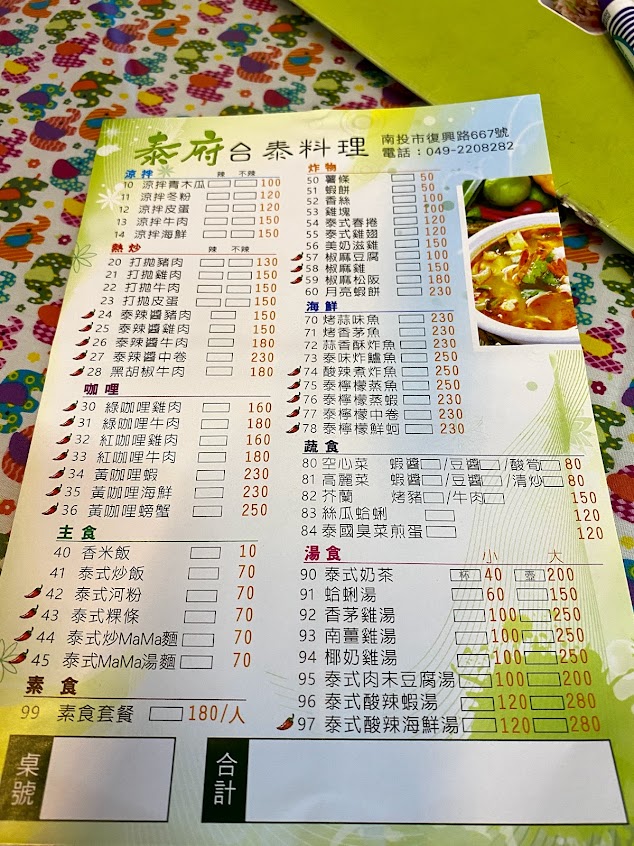 泰府台泰料理
南投市復興路667號
電話：049-2208282
涼拌 辣 不辣
10 涼拌青木瓜 100
11 涼拌冬粉 120
12 涼拌皮蛋 120
13 涼拌牛肉 150
14 涼拌海鮮 150
熱炒 辣 不辣
20 打拋豬肉 130
21 打拋雞肉 150
22 打拋牛肉 150
23 打拋皮蛋 150
24 泰辣醬豬肉 150
25 泰辣醬雞肉 150
26 泰辣醬牛肉 180
27 泰辣醬中卷 230
28 黑胡椒牛肉 180
咖哩
30 綠咖哩雞肉 160
31 綠咖哩牛肉 180
32 紅咖哩雞肉 160
33 紅咖哩牛肉 180
34 黃咖哩蝦 230
35 黃咖哩海鮮 230
36 黃咖哩螃蟹 250
主食
40 香米飯 10
41 泰式炒飯 70
42 泰式河粉 70
43 泰式粿條 70
44 泰式炒MaMa麵 70
45 泰式MaMa湯麵 70
素食
99 素食套餐 180/人
炸物
50 薯條 50
51 蝦餅 50
52 香絲
53 雞塊 100
54 泰式春捲 120
55 泰式雞翅 120
56 美奶滋雞 150
57 椒麻豆腐 100
58 椒麻雞 150
59 椒麻松阪 180
60 月亮蝦餅 230
海鮮
70 烤蒜味魚 230
71 烤香茅魚 230
72 蒜香酥炸魚 230
73 泰味炸鱸魚 250
74 酸辣煮炸魚 250
75 泰檸檬蒸魚 250
76 泰檸檬蒸蝦 230
77 泰檸檬中卷 230
78 泰檸檬鮮蚵 230
蔬食
80 空心菜 蝦醬/豆醬/酸筍 80
81 高麗菜 蝦醬/豆醬/清炒 80
82 芥蘭 烤豬/牛肉 150
83 絲瓜蛤蜊 120
84 泰國臭菜煎蛋 120
湯食 小 大
90 泰式奶茶 杯 40 壺 200
91 蛤蜊湯 60 150
92 香茅雞湯 100 250
93 南薑雞湯 100 250
94 椰奶雞湯 100 250
95 泰式肉末豆腐湯 100 200
96 泰式酸辣蝦湯 120 280
97 泰式酸辣海鮮湯 120 280
桌號
合計